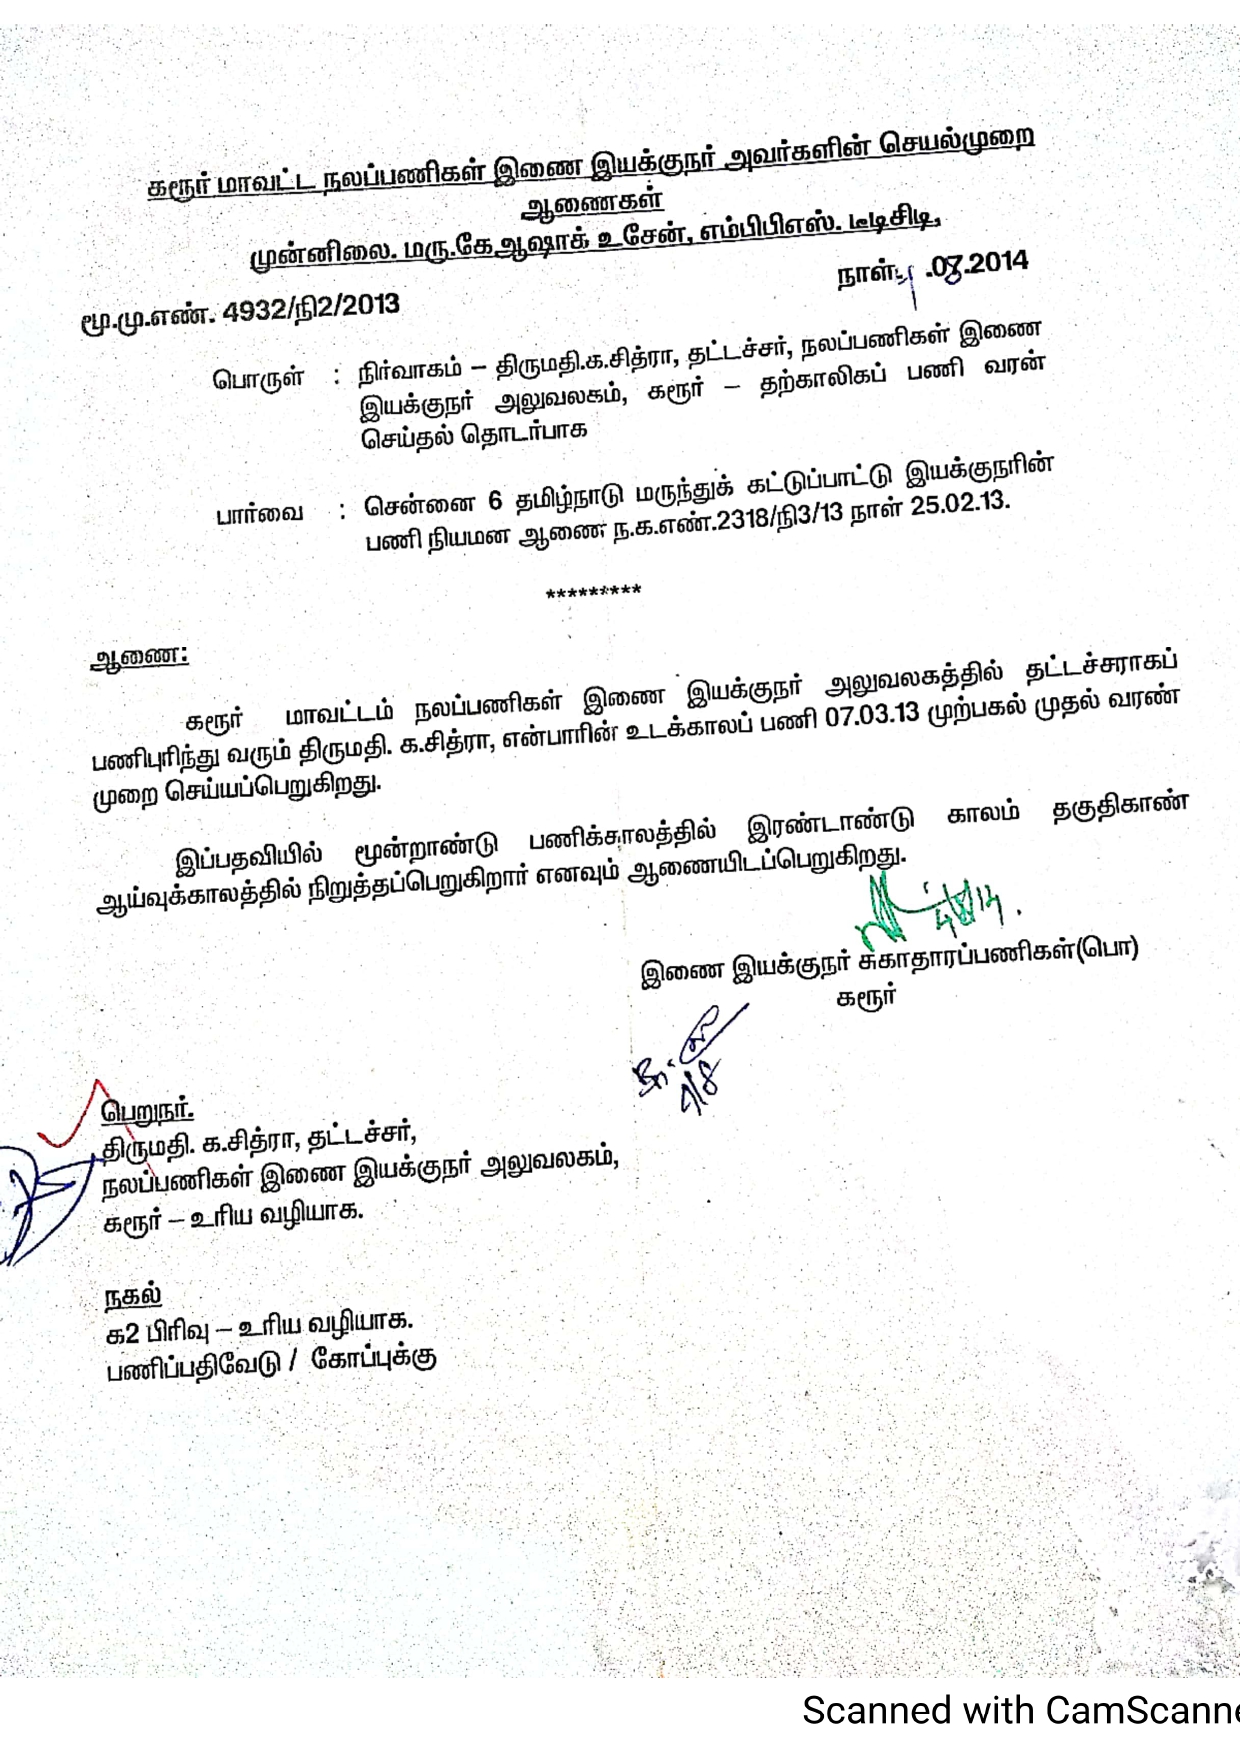 கரூர் மாவட்ட நலப்பணிகள் இணை இயக்குநர் அவர்களின் செயல்முறை
ஆணைகள்
முன்னிலை. மரு.கே.ஆஷாக் உசேன், எம்பிபிஎஸ். டீடிசிடி,
நாள்: .08.2014
மூ.மு.எண். 4932/நி2/2013
பொருள் : நிர்வாகம் – திருமதி.க.சித்ரா, தட்டச்சர், நலப்பணிகள் இணை
இயக்குநர் அலுவலகம், கரூர் – தற்காலிகப் பணி வரன்
செய்தல் தொடர்பாக
பார்வை : சென்னை 6 தமிழ்நாடு மருந்துக் கட்டுப்பாட்டு இயக்குநரின்
பணி நியமன ஆணை ந.க.எண்.2318/நி3/13 நாள் 25.02.13.
*********
ஆணை:
கரூர் மாவட்டம் நலப்பணிகள் இணை இயக்குநர் அலுவலகத்தில் தட்டச்சராகப்
பணிபுரிந்து வரும் திருமதி. க.சித்ரா, என்பாரின் உடக்காலப் பணி 07.03.13 முற்பகல் முதல் வரண்
முறை செய்யப்பெறுகிறது.
இப்பதவியில் மூன்றாண்டு பணிக்காலத்தில் இரண்டாண்டு காலம் தகுதிகாண்
ஆய்வுக்காலத்தில் நிறுத்தப்பெறுகிறார் எனவும் ஆணையிடப்பெறுகிறது.
4/8/14
இணை இயக்குநர் சுகாதாரப்பணிகள்(பொ)
கரூர்
பெறுநர்.
திருமதி. க.சித்ரா, தட்டச்சர்,
நலப்பணிகள் இணை இயக்குநர் அலுவலகம்,
கரூர் – உரிய வழியாக.
நகல்
க2 பிரிவு – உரிய வழியாக.
பணிப்பதிவேடு / கோப்புக்கு
Scanned with CamScanne